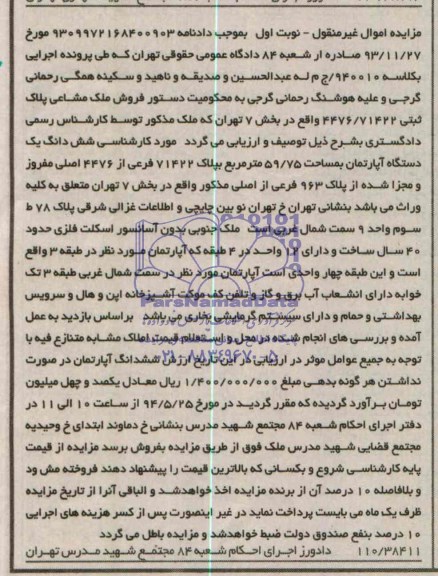 مزایده اموال غیرمنقول - نوبت اول بموجب دادنامه ۹۳۰۹۹۷۲۱۶۸۴۰۰۹۰۳ مورخ
۹۳/۱۱/۲۷ صادره از شعبه ۸۴ دادگاه عمومی حقوقی تهران که طی پرونده اجرایی
بکلاسه ۹۴۰۰۱۰/ج م له عبدالحسین و صدیقه و ناهید و سکینه همگی رحمانی
گرجی و علیه هوشنگ رحمانی گرجی به محکومیت دستور فروش ملک مشاعی پلاک
ثبتی ۴۴۷۶/۷۱۴۲۲ واقع در بخش ۷ تهران که ملک مذکور توسط کارشناس رسمی
دادگستری بشرح ذیل توصیف و ارزیابی می گردد مورد کارشناسی شش دانگ یک
دستگاه آپارتمان بمساحت ۵۹/۷۵ مترمربع بپلاک ۷۱۴۲۲ فرعی از ۴۴۷۶ اصلی مفروز
و مجزا شده از پلاک ۹۶۳ فرعی از اصلی مذکور واقع در بخش ۷ تهران متعلق به کلیه
وراث می باشد بنشانی تهران خ تهران نو بین چایچی و اطلاعات غزالی شرقی پلاک ۷۸ ط
سوم واحد ۹ سمت شمال غربی است ملک جنوبی بدون آسانسور اسکلت فلزی حدود
۴۰ سال ساخت و دارای ۱۲ واحد در ۴ طبقه که آپارتمان مورد نظر در طبقه ۳ واقع
است و این طبقه چهار واحدی است آپارتمان مورد نظر در سمت شمال غربی طبقه ۳ تک
خوابه دارای انشعاب آب برق و گاز و تلفن کف موکت آشپزخانه اپن و هال و سرویس
بهداشتی و حمام و دارای سیستم گرمایشی بخاری می باشد براساس بازدید به عمل
آمده و بررسی های انجام شده در محل و استعلام قیمت املاک مشابه متنازع فیه با
توجه به جمیع عوامل موثر در ارزیابی در این تاریخ ارزش ششدانگ آپارتمان در صورت
نداشتن هر گونه بدهی مبلغ ۱/۴۰۰/۰۰۰/۰۰۰ ریال معادل یکصد و چهل میلیون
تومان برآورد گردیده که مقرر گردید در مورخ ۹۴/۵/۲۵ از ساعت ۱۰ الی ۱۱ در
دفتر اجرای احکام شعبه ۸۴ مجتمع شهید مدرس بنشانی خ دماوند ابتدای خ وحیدیه
مجتمع قضایی شهید مدرس ملک فوق از طریق مزایده بفروش برسد مزایده از قیمت
پایه کارشناسی شروع و بکسانی که بالاترین قیمت را پیشنهاد دهند فروخته مش ود
و بلافاصله ۱۰ درصد آن از برنده مزایده اخذ خواهدشد و الباقی آنرا از تاریخ مزایده
ظرف یک ماه می بایست پرداخت نماید در غیر اینصورت پس از کسر هزینه های اجرایی
۱۰ درصد بنفع صندوق دولت ضبط خواهدشد و مزایده باطل می گردد
۱۱۰/۳۸۴۱۱ دادورز اجرای احکام شعبه ۸۴ مجتمع شهید مدرس تهران
ParsNamadData
۰۲۱-۸۸۳۴۹۶۷۰-۵